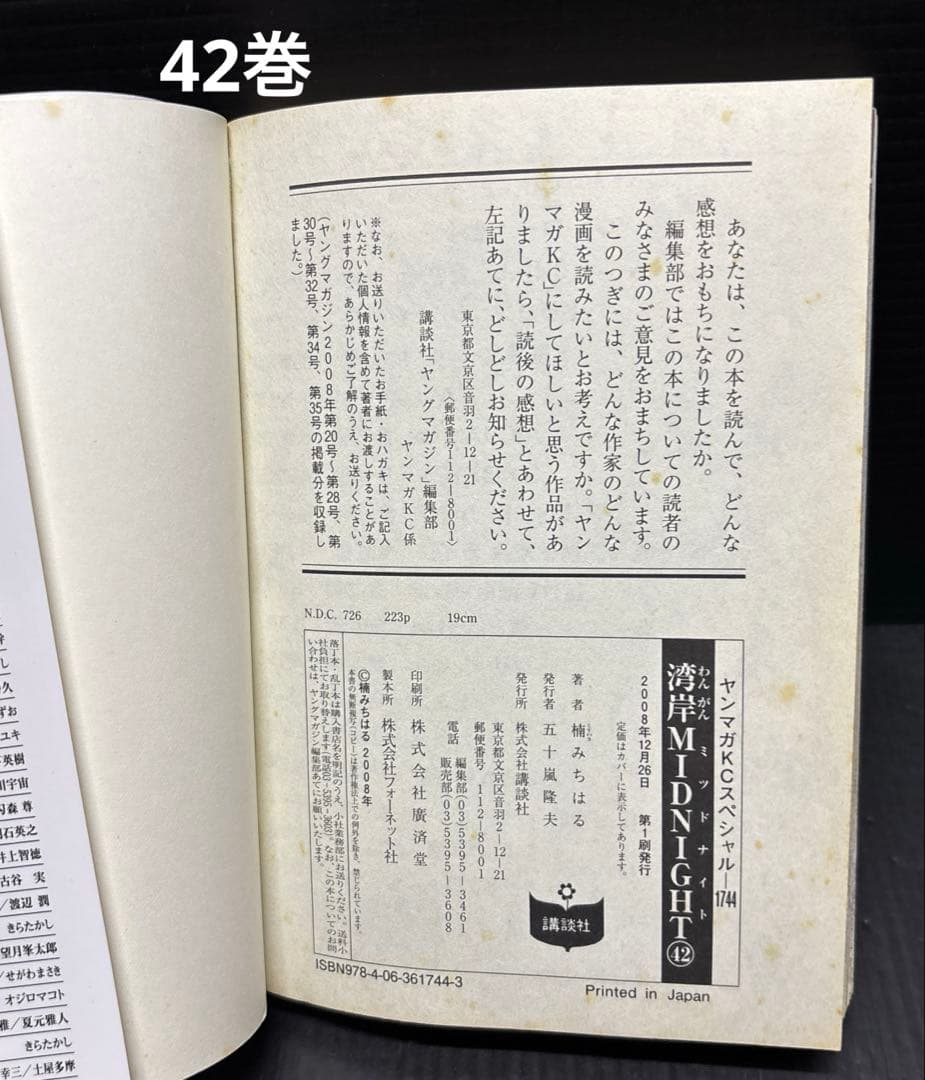 42巻
あなたは、この本を読んで、どんな
感想をおもちになりましたか。
編集部ではこの本についての読者の
みなさまのご意見をおまちしています。
このつぎには、どんな作家のどんな
漫画を読みたいとお考えですか。「ヤン
マガKC」にしてほしいと思う作品があ
りましたら、「読後の感想」とあわせて、
左記あてに、どしどしお知らせください。
東京都文京区音羽2-12-21
〈郵便番号112-8001〉
講談社「ヤングマガジン」編集部
ヤンマガKC係
※なお、お送りいただいたお手紙・おハガキは、ご記入
いただいた個人情報を含めて著者にお渡しすることがあ
りますので、あらかじめご了解のうえ、お送りください。
(ヤングマガジン2008年第20号〜第28号、第
30号〜第32号、第34号、第35号の掲載分を収録し
ました。)
N.D.C. 726 223p 19cm
ヤンマガKCスペシャル―1744
湾岸MIDNIGHT㊷
わんがんミッドナイト
2008年12月26日 第1刷発行
定価はカバーに表示してあります。
著者 楠みちはる
発行者 五十嵐隆夫
発行所 株式会社講談社
東京都文京区音羽2-12-21
郵便番号 112-8001
電話 編集部(03)5395-3461
販売部(03)5395-3608
印刷所 株式会社廣済堂
製本所 株式会社フォーネット社
©楠みちはる 2008年
本書の無断複写(コピー)は著作権法上での例外を除き、禁じられています。
落丁本・乱丁本は購入書店名を明記のうえ、小社業務部にお送りください。送料小
社負担にてお取り替えします(電話03-5395-3603)。なお、この本についてのお問
い合わせは、ヤングマガジン編集部あてにお願いいたします。
講談社
ISBN978-4-06-361744-3
Printed in Japan
久
ずお
ユキ
英樹
川宇宙
森 尊
石英之
井上智徳
古谷 実
/渡辺 潤
きらたかし
望月峯太郎
/せがわまさき
オジロマコト
雅/夏元雅人
きらたかし
幸三/土屋多摩